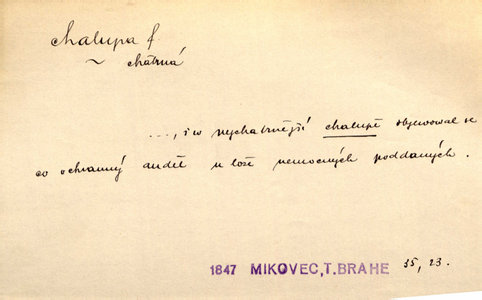 chalupa f
~ chatrná
..., i w nejchatrnější chalupě objewowal se
co ochranný anděl u lože nemocných poddaných.
1847 MIKOVEC,T.BRAHE 35, 23.